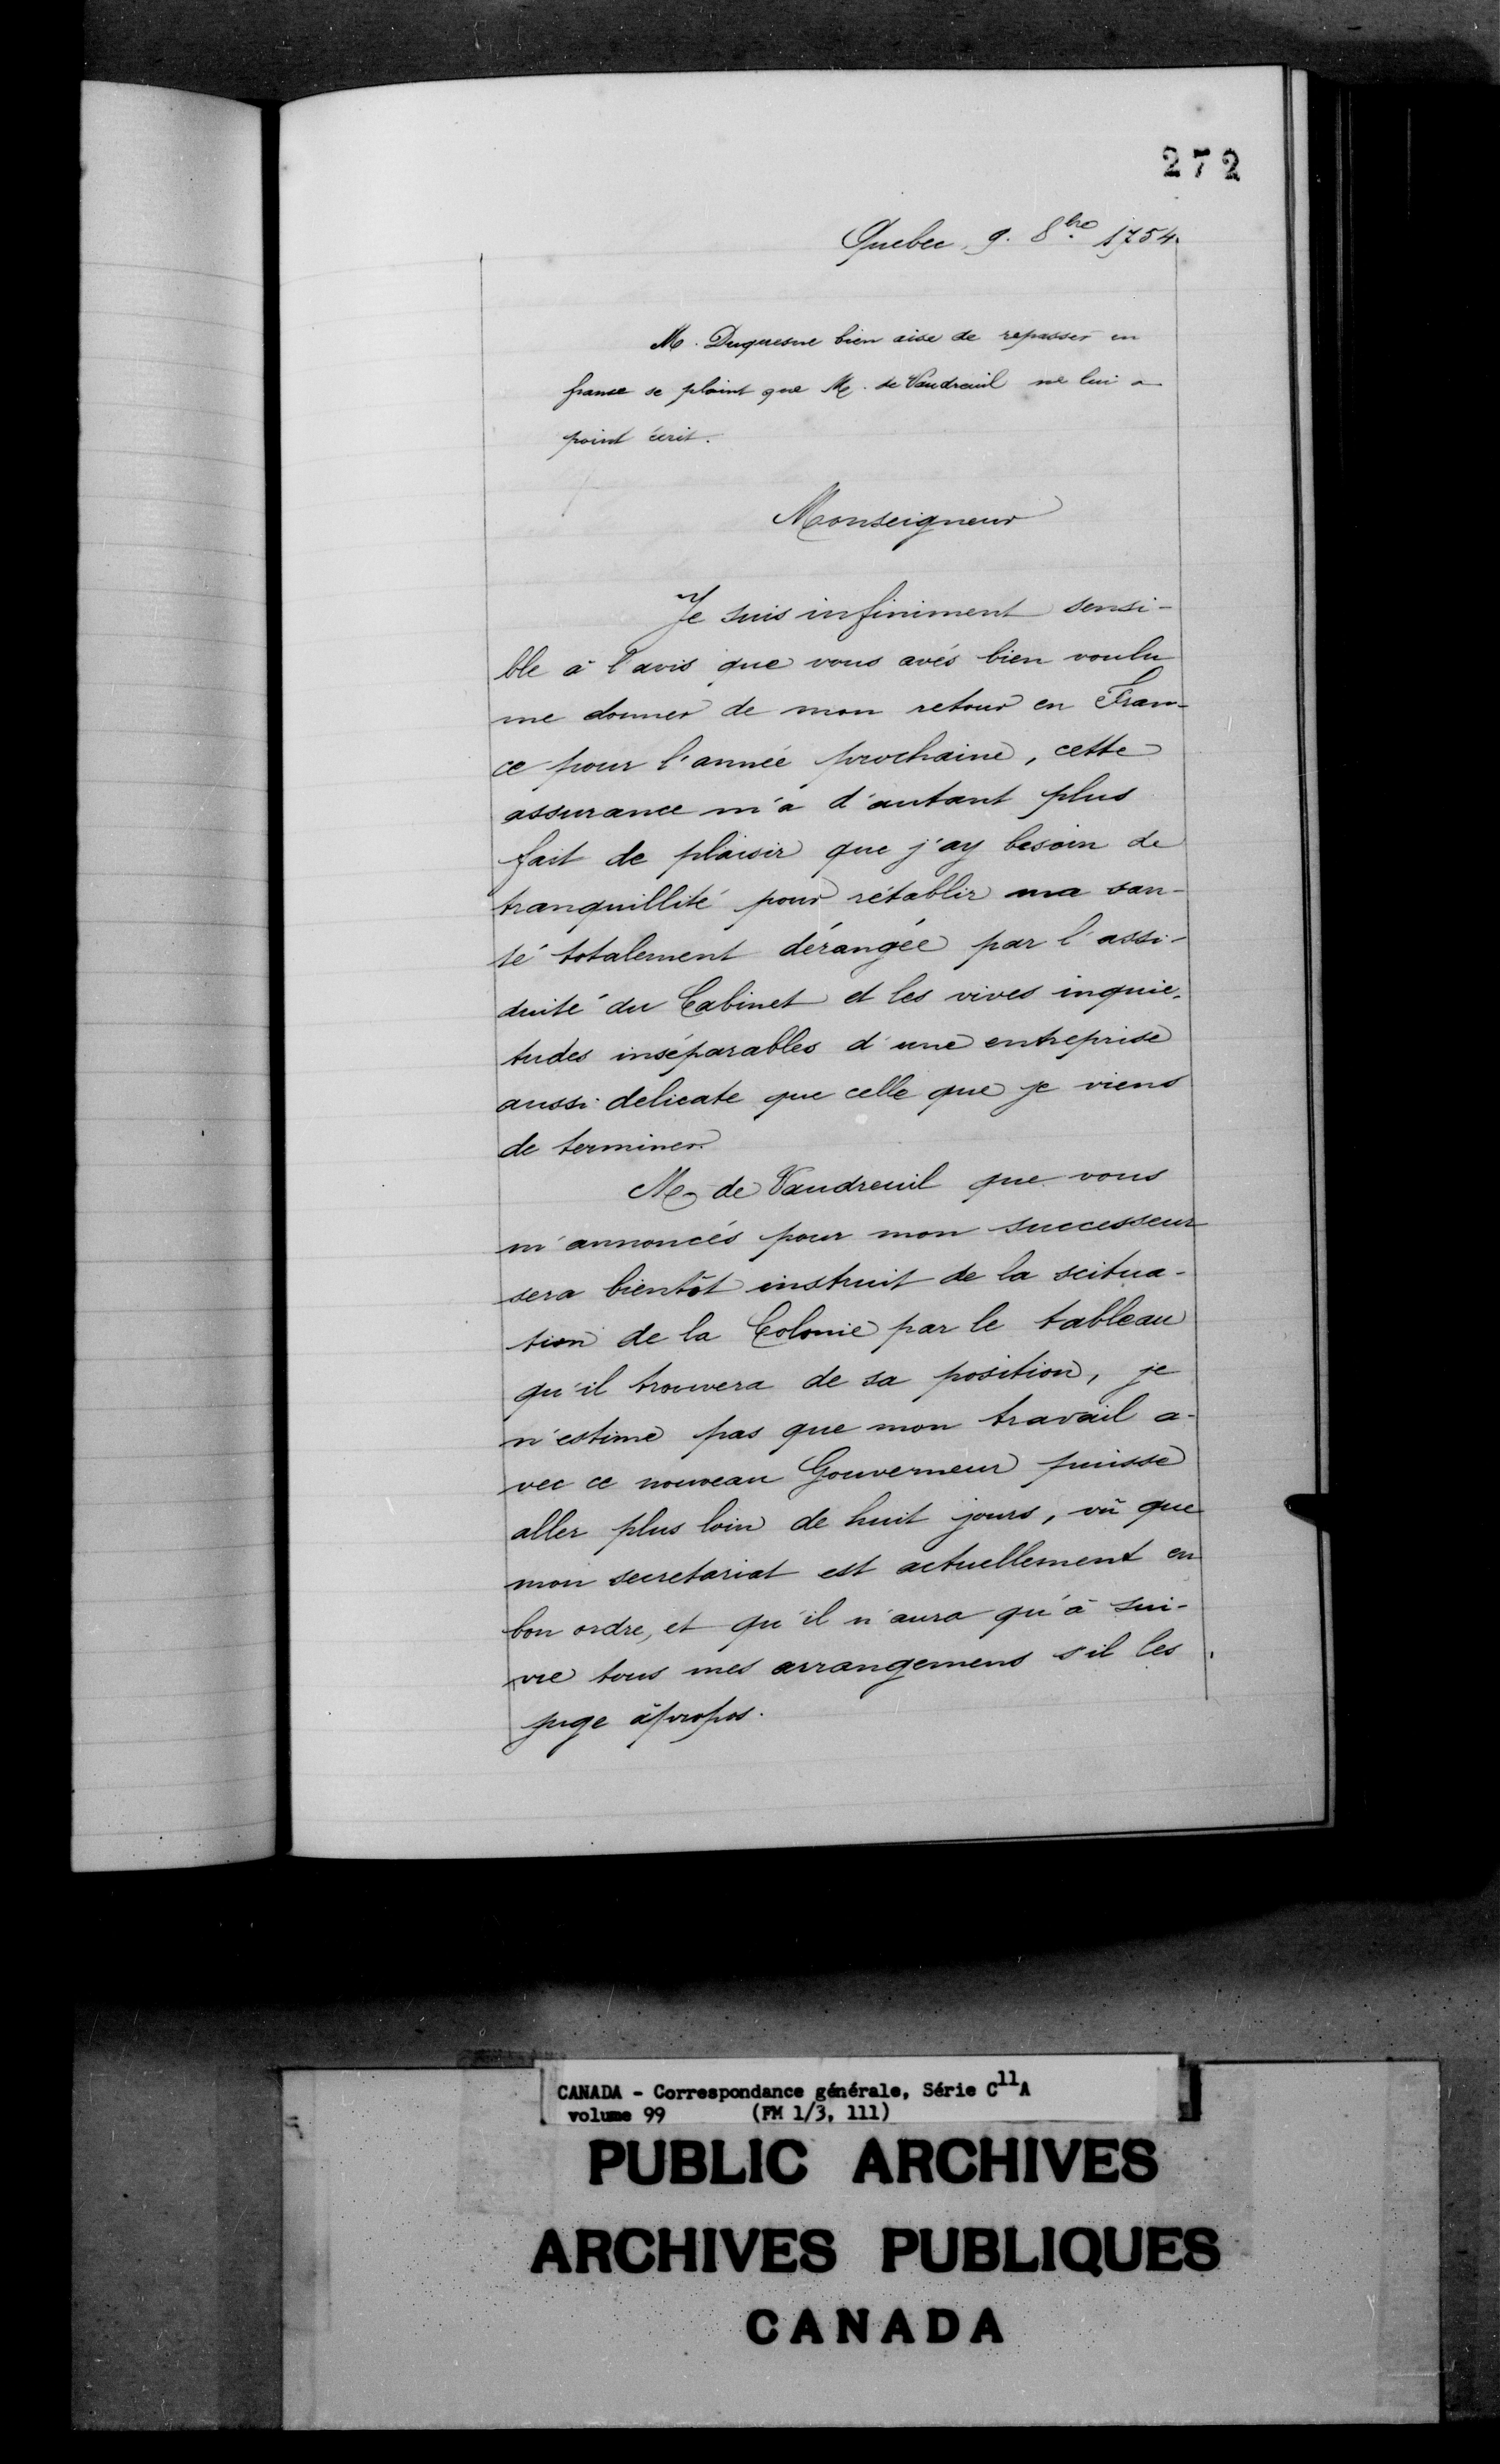 272
Quebec, 9. 8bre 1754.
M. Duquesne bien aise de repasser en
france se plaint que M. de Vaudreuil ne lui a
point écrit.
Monseigneur
Je suis infiniment sensi-
ble à l'avis que vous avés bien voulu
me donner de mon retour en Fran-
ce pour l'année prochaine, cette
assurance m'a d'autant plus
fait de plaisir que j'ay besoin de
tranquillité pour rétablir ma san-
té totalement dérangée par l'assi-
duité du Cabinet et les vives inquie-
tudes inséparables d'une entreprise
aussi delicate que celle que je viens
de terminer.
M. de Vaudreuil que vous
m'annoncés pour mon successeur
sera bientôt instruit de la scitua-
tion de la Colonie par le tableau
qu'il trouvera de sa position, je
n'estime pas que mon travail a-
vec ce nouveau Gouverneur puisse
aller plus loin de huit jours, vû que
mon secretariat est actuellement en
bon ordre, et qu'il n'aura qu'à sui-
vre tous mes arrangemens s'il les
juge àpropos.
CANADA - Correspondance générale, Série C11A
volume 99 (FM 1/3, 111)
PUBLIC ARCHIVES
ARCHIVES PUBLIQUES
CANADA